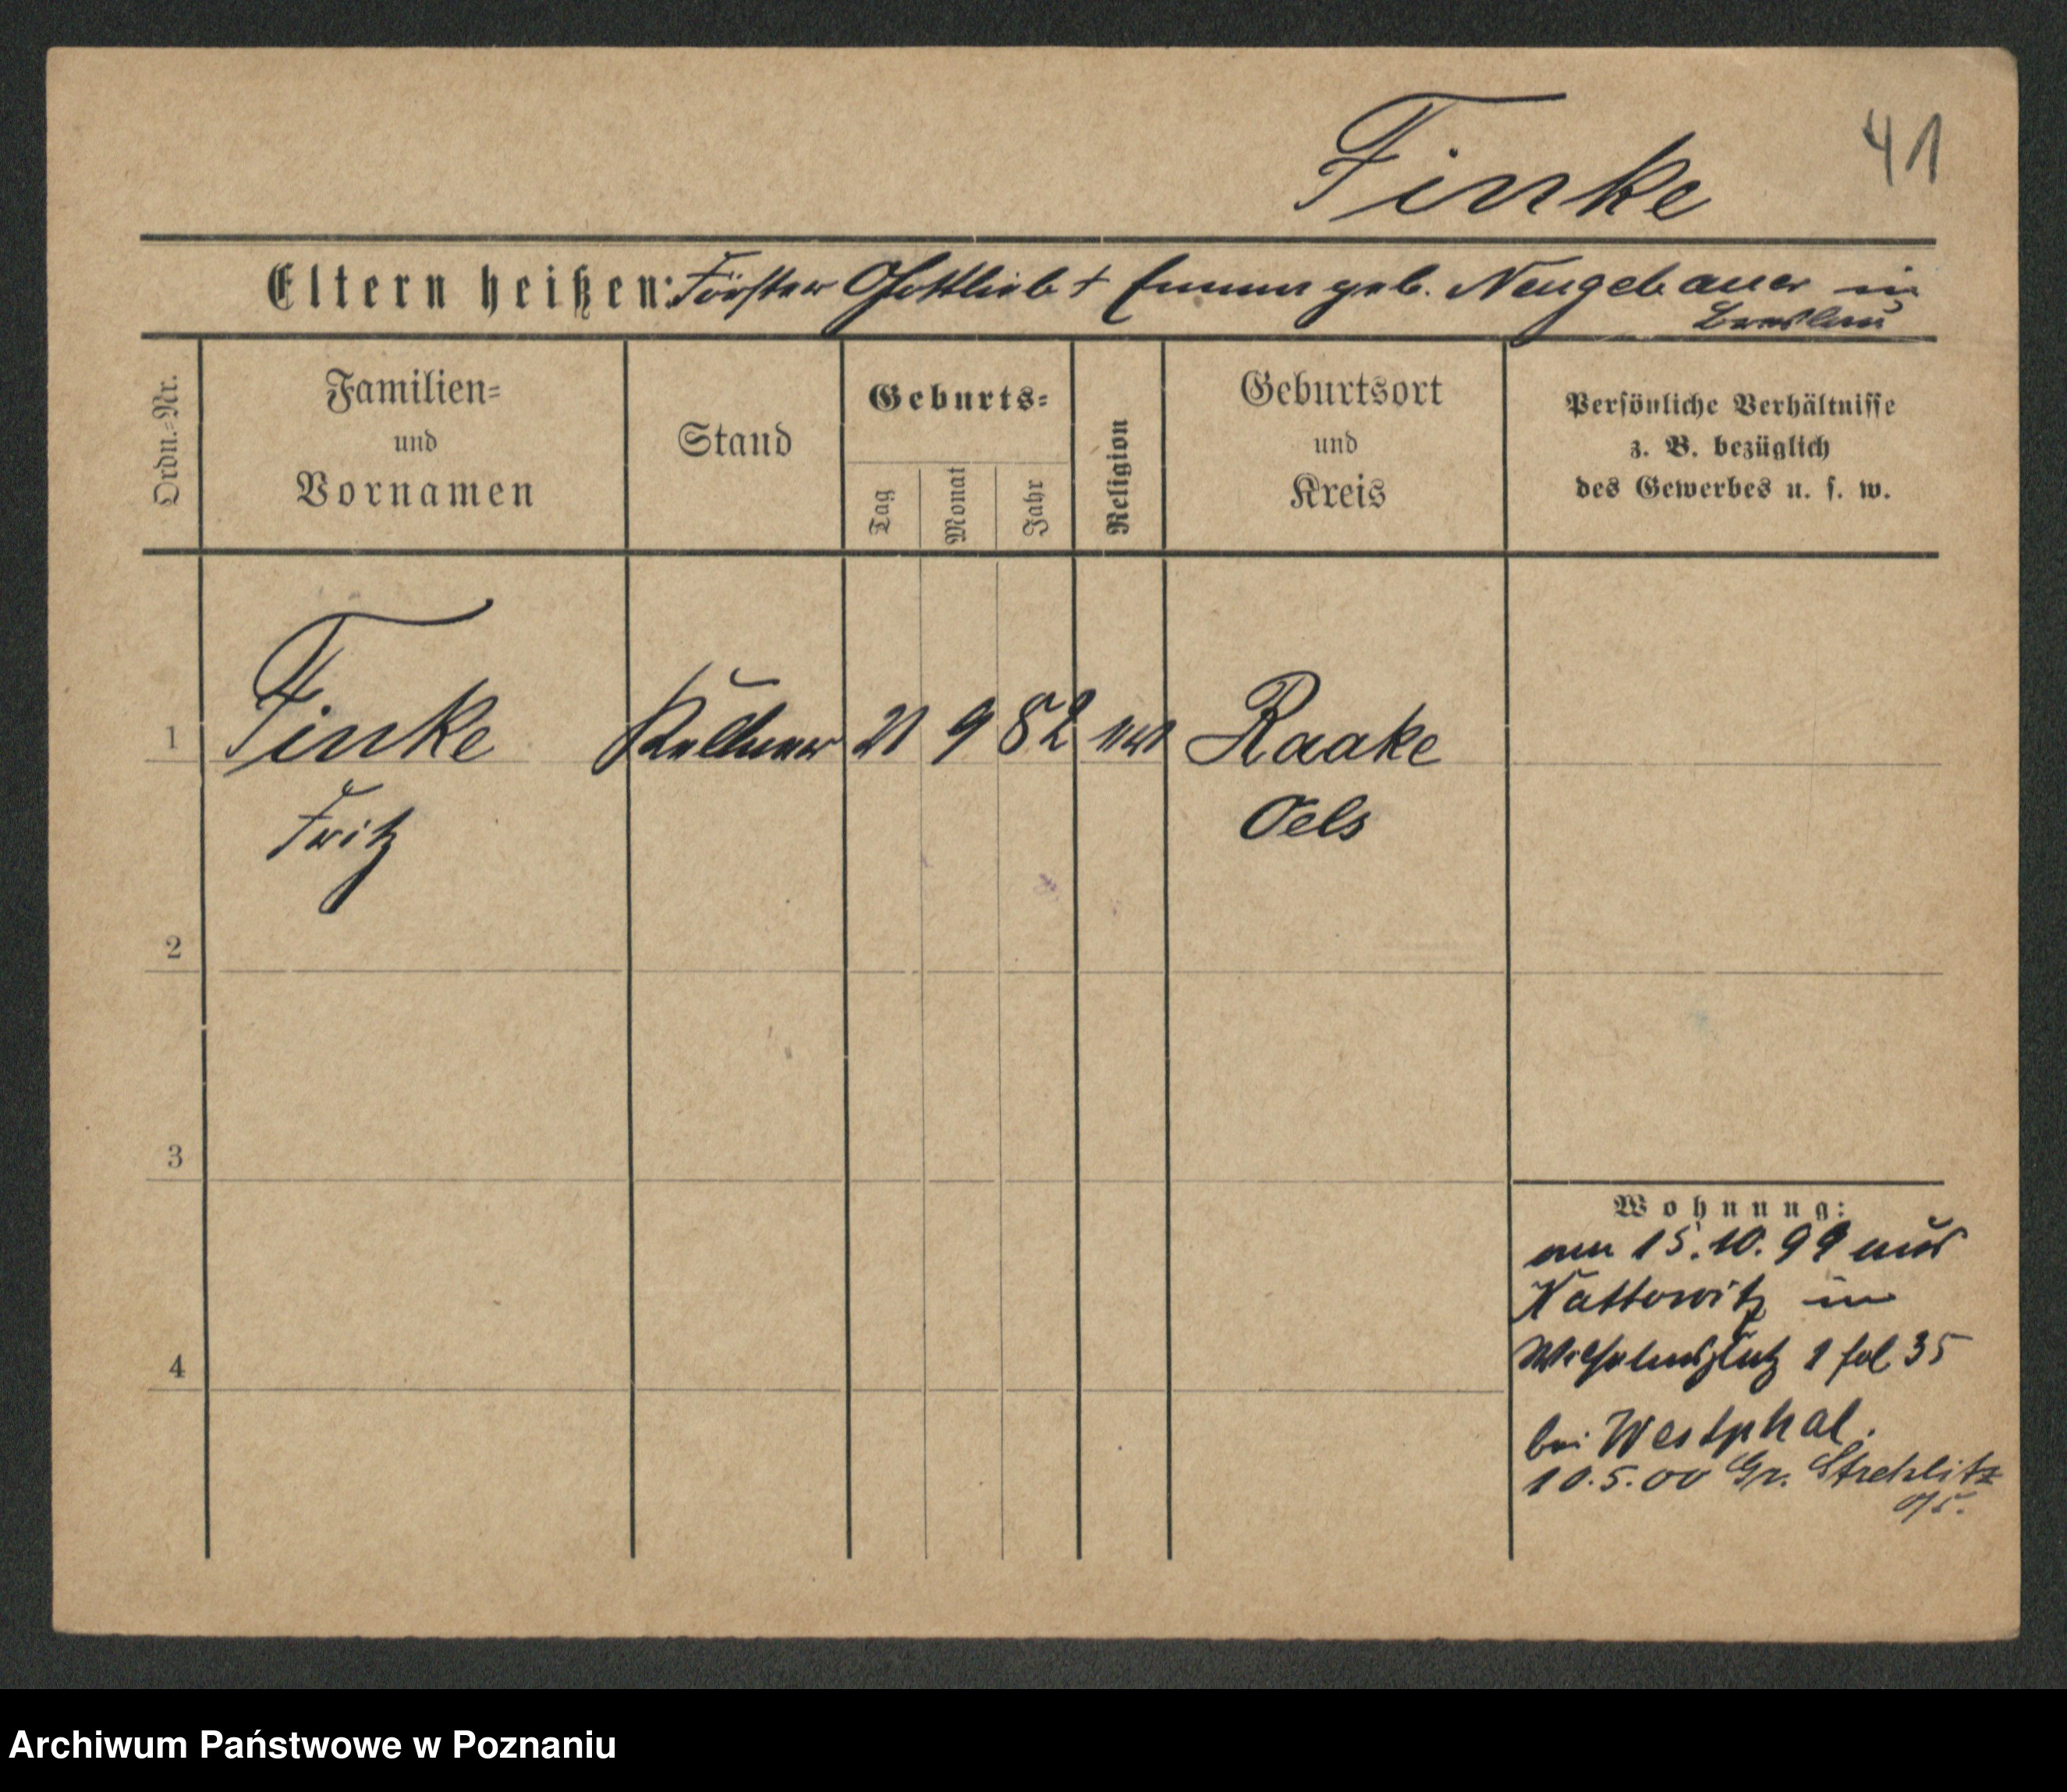 41
Finke
Eltern heißen: Förster Gottlieb † Emma geb. Neugebauer in
Breslau
Ordn.-Nr.
Familien-
und
Vornamen
Stand
Geburts-
Tag
Monat
Jahr
Religion
Geburtsort
und
Kreis
Persönliche Verhältnisse
z. B. bezüglich
des Gewerbes u. s. w.
1 Finke Kellner 21 9 82 Raake
Fritz Oels
2
3
4
Wohnung:
am 15.10.99 aus
Kattowitz in
Wilhelmsplatz 1 fol 35
bei Westphal.
10.5.00 Gr. Strehlitz
O/S.
Archiwum Państwowe w Poznaniu